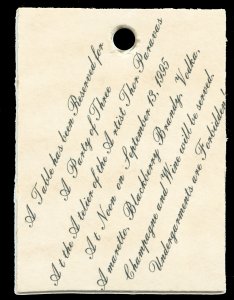 A Table has been Reserved for
A Party of Three
At the Atelier of the Artist Thor Paravas
At Noon on September 13, 1995
Amaretto, Blackberry Brandy, Vodka,
Champagne and Wine will be served.
Undergarments are Forbidden!